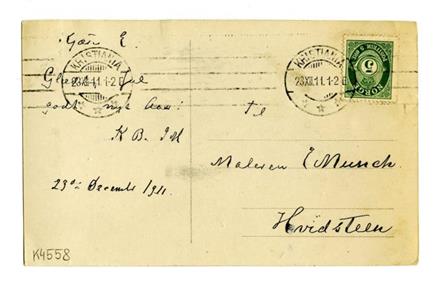 Kjære E.
Glædelig Jul
godt nytt Aar!
K B.
23de December 1911.
K4558
KRISTIANIA
23XII.11.1-2
KRISTIANIA
23XII.11.1-2
NORGE
5
Til
Maleren E Munch.
Hvidsteen